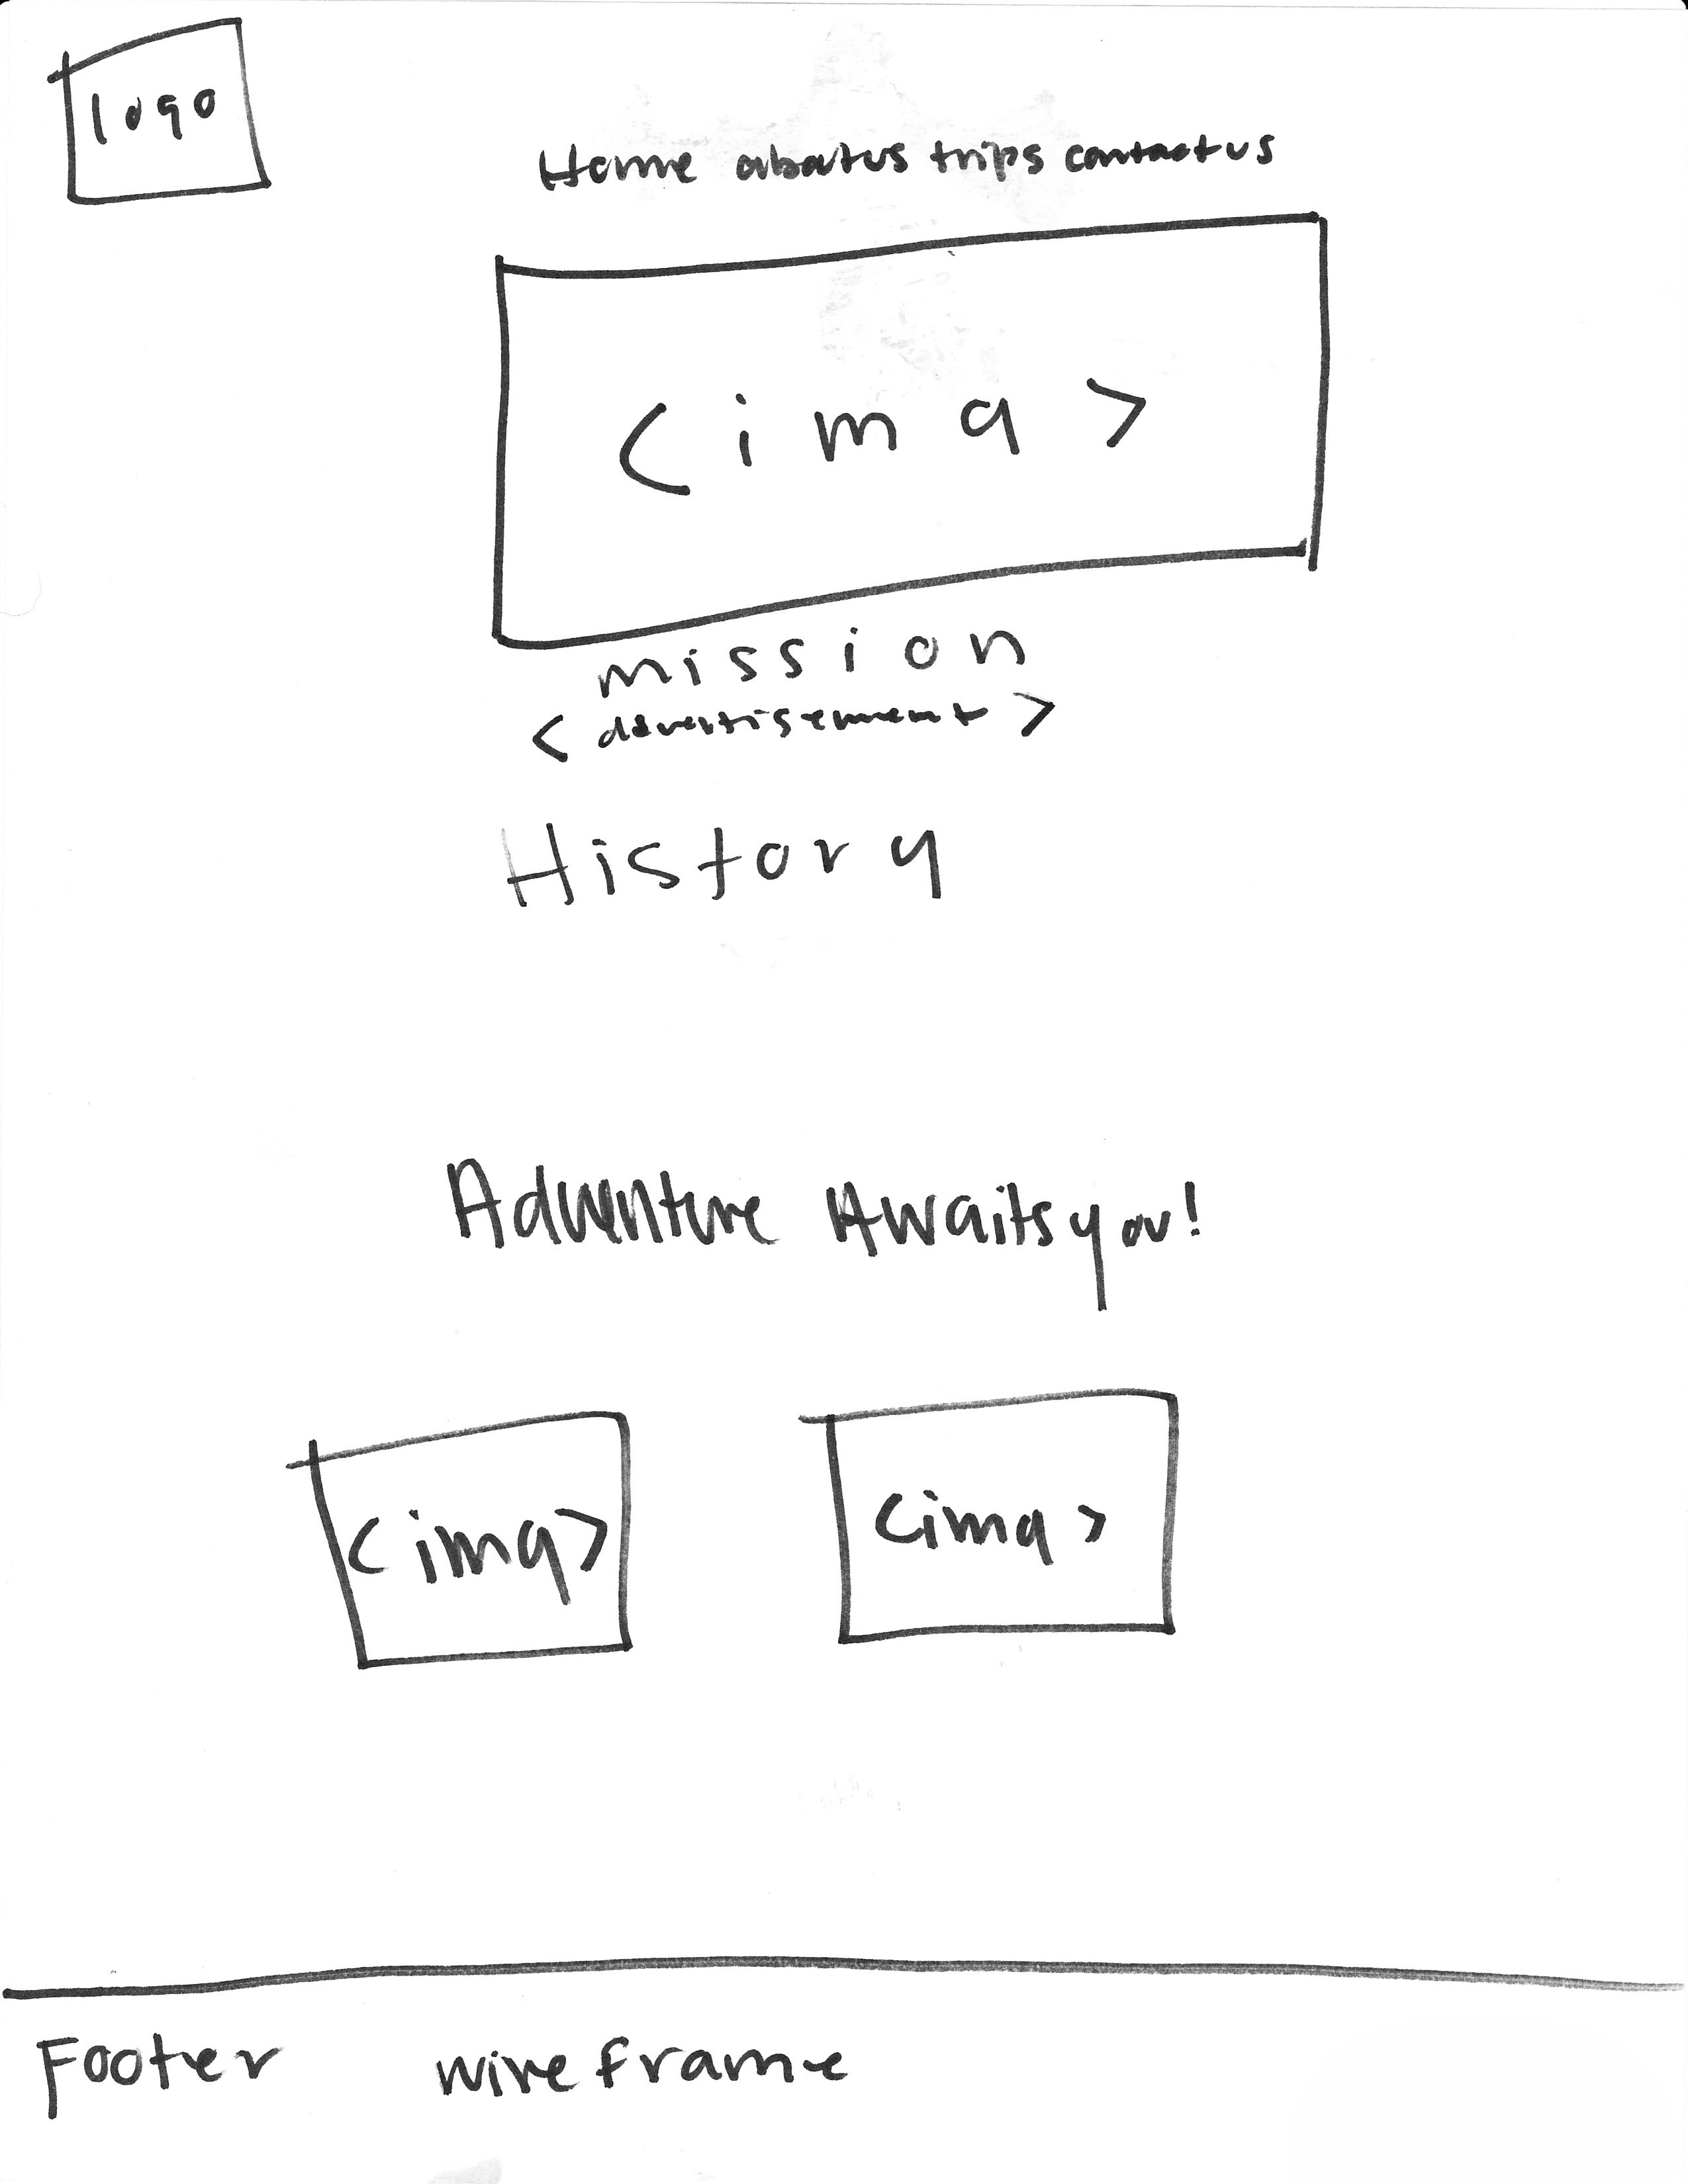 logo
Home aboutus trips contactus
<img>
mission
<advertisement>
History
Adventure Awaits you!
<img> <img>
Footer wireframe